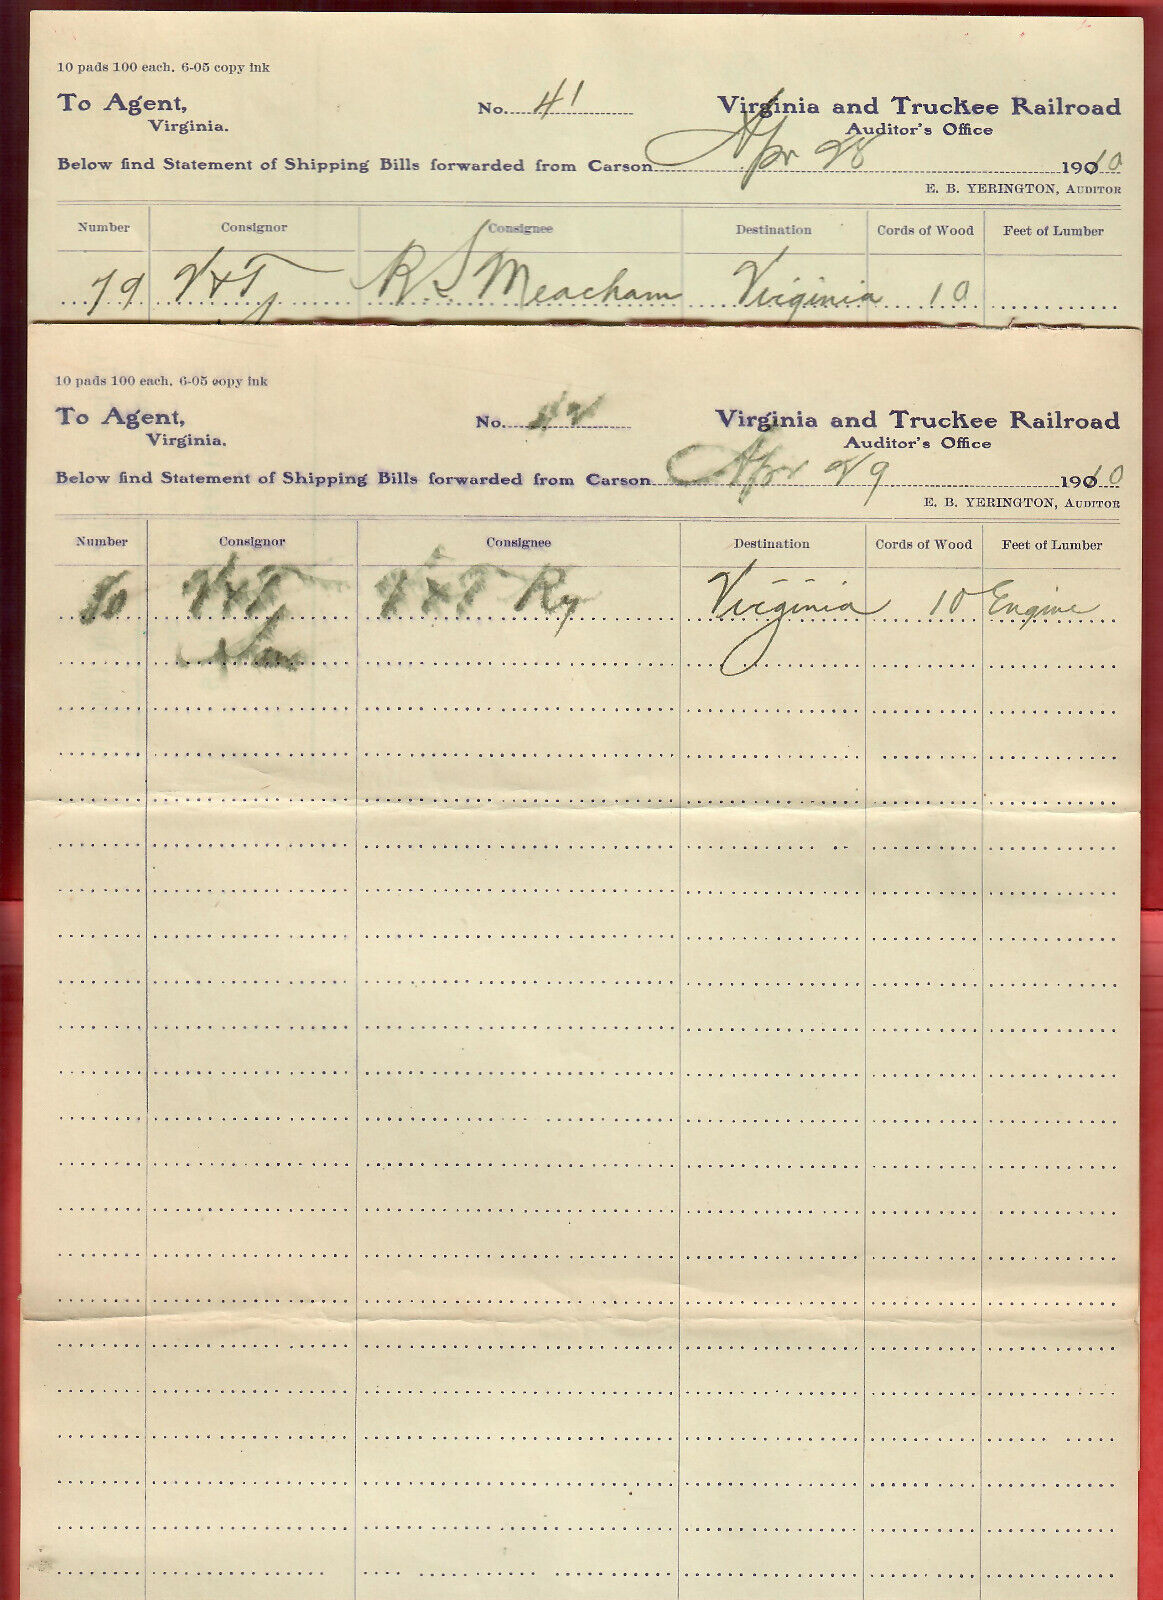 10 pads 100 each. 6-05 copy ink
To Agent, No. 41 Virginia and Truckee Railroad
Virginia. Auditor's Office
Below find Statement of Shipping Bills forwarded from Carson Apr 28 1910
E. B. YERINGTON, AUDITOR
Number Consignor Consignee Destination Cords of Wood Feet of Lumber
79 V&T R S Meacham Virginia 10
10 pads 100 each. 6-05 copy ink
To Agent, No. 42 Virginia and Truckee Railroad
Virginia. Auditor's Office
Below find Statement of Shipping Bills forwarded from Carson Apr 29 1910
E. B. YERINGTON, AUDITOR
Number Consignor Consignee Destination Cords of Wood Feet of Lumber
80 V&T V&T Ry Virginia 10 Engine